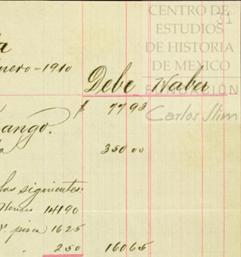 CENTRO DE
ESTUDIOS
DE HISTORIA
DE MEXICO
FUNDACIÓN
Carlos Slim
31
enero-1910
Debe Haber
$ 7793
ango.
350 00
los siguientes
14190
pieza 1625
250 16065